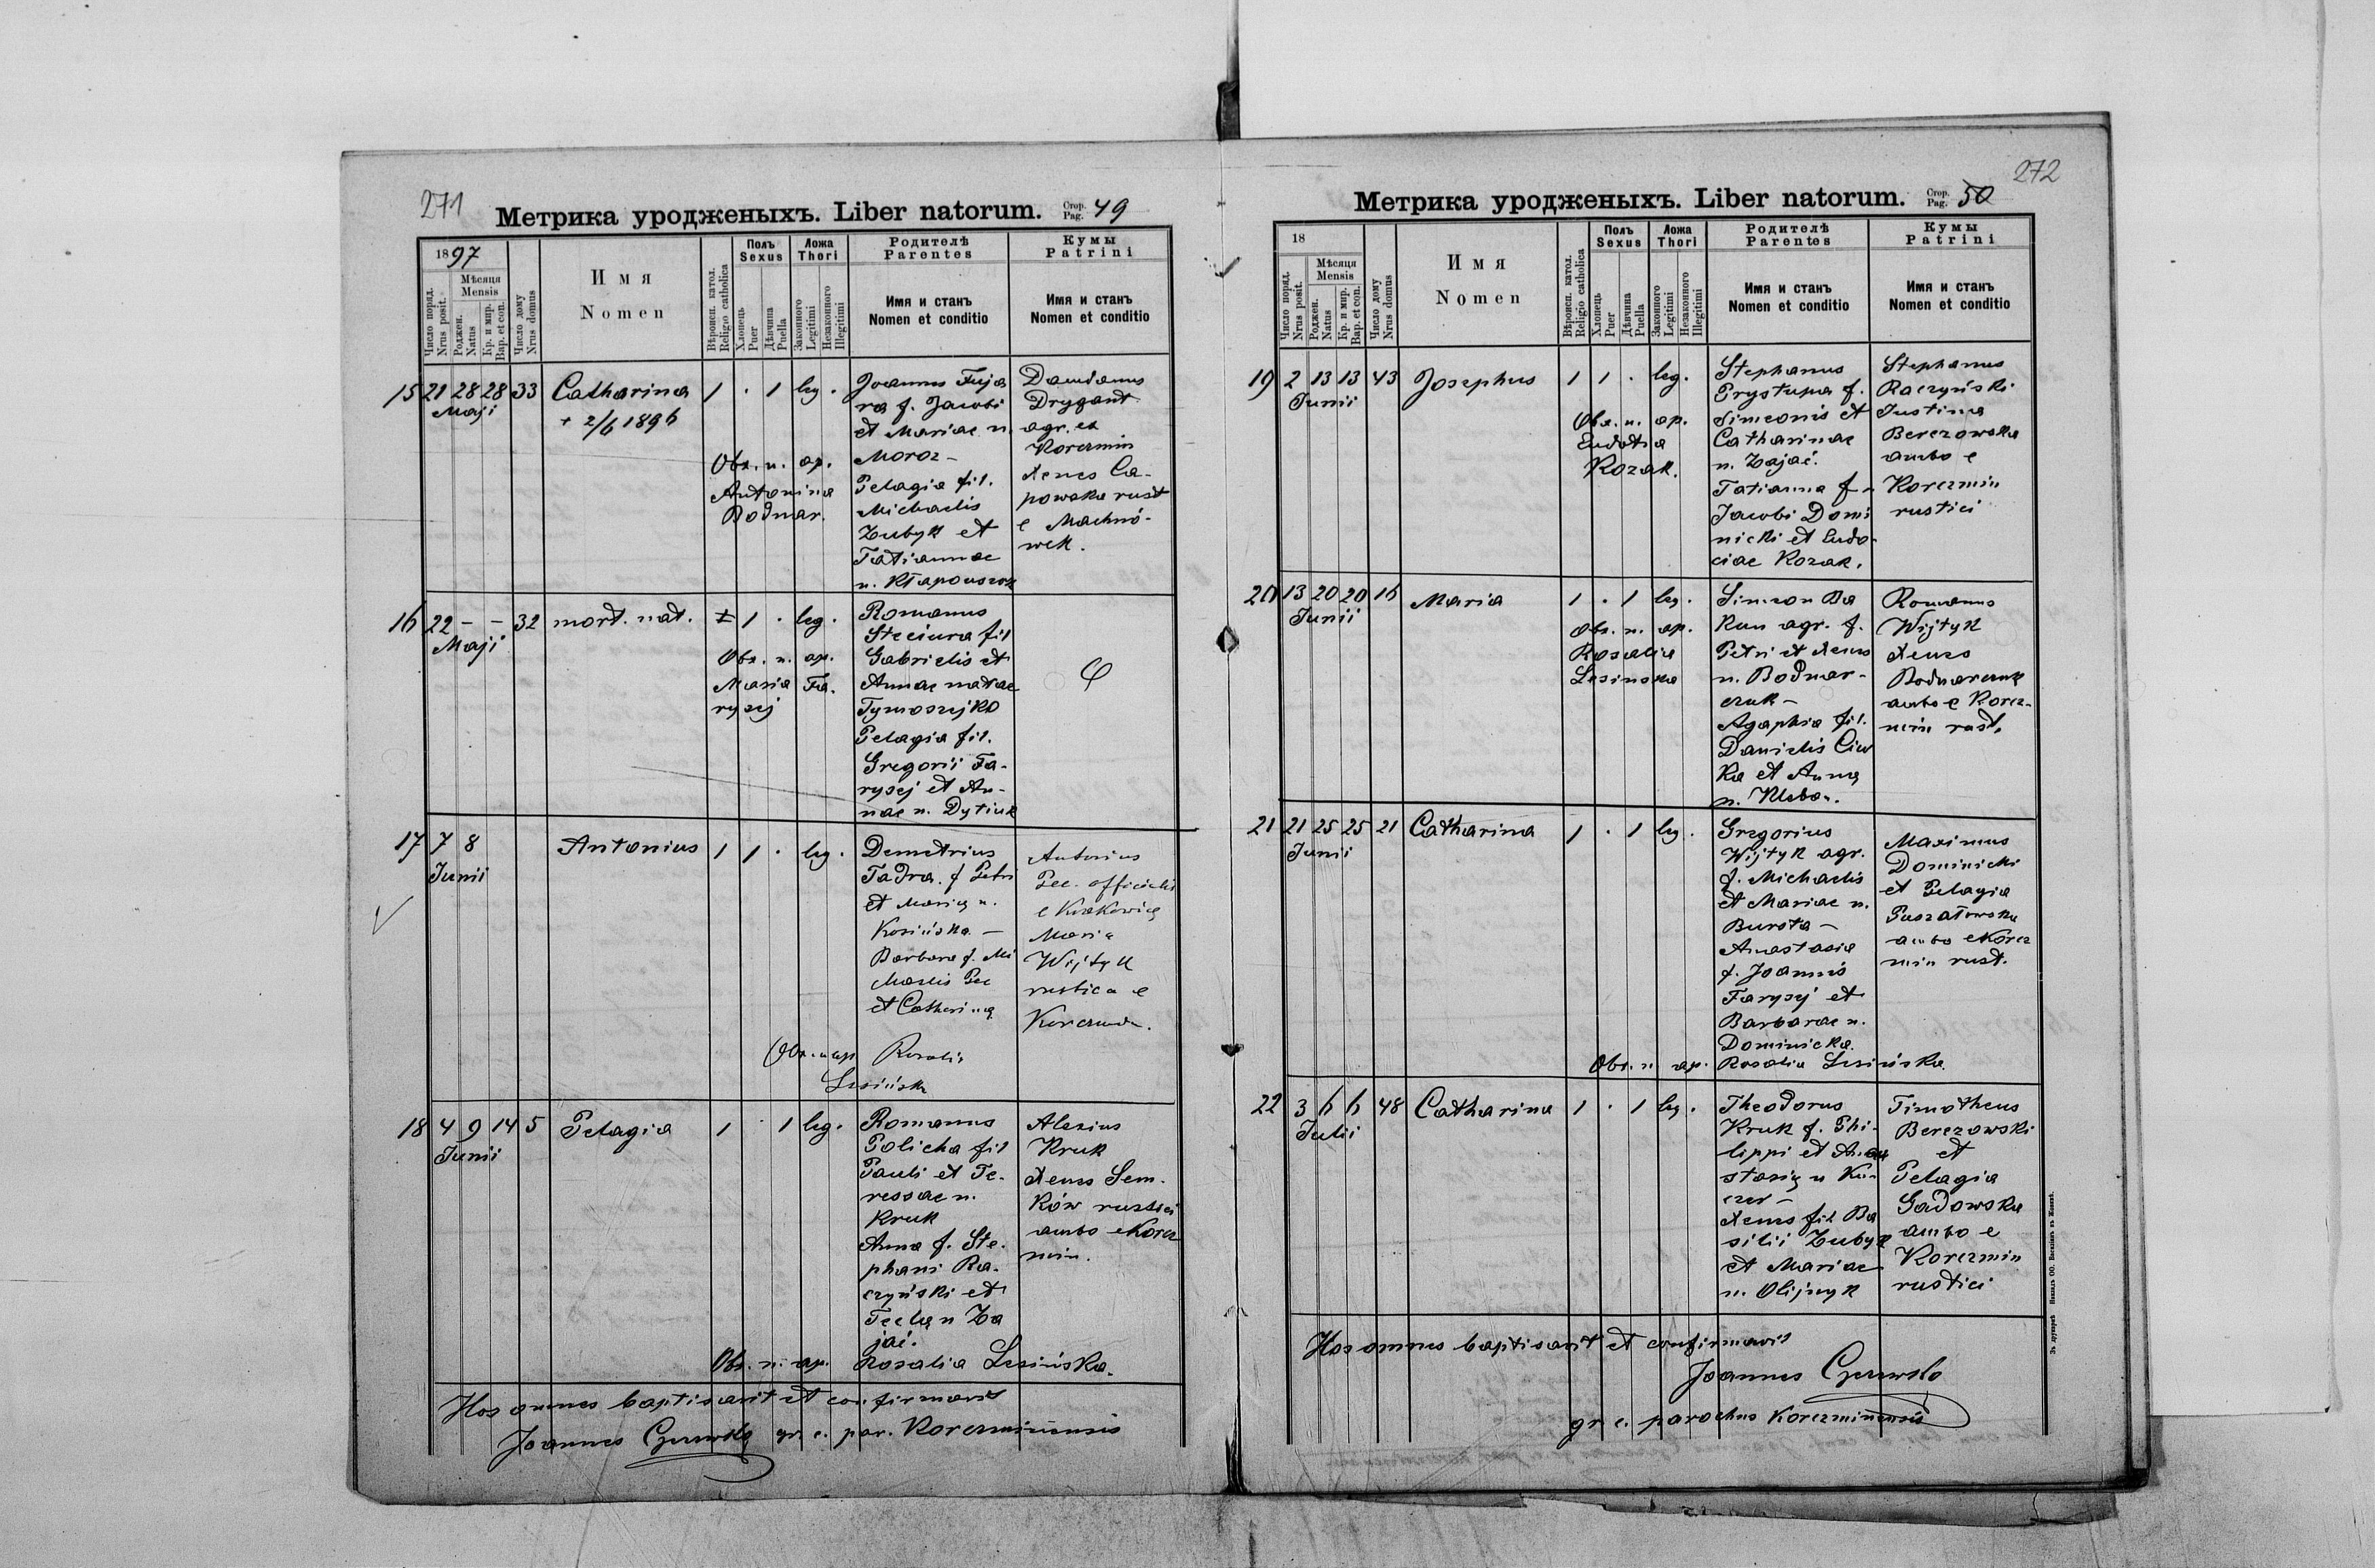 271
Метрика уродженыхъ. Liber natorum. Стор. Pag. 49
1897
Число поряд. Nrus posit.
Мѣсяця Mensis
Роджен. Natus
Кр. и мир. Bap. et con.
Число дому Nrus domus
Имя
Nomen
Вѣроисп. катол. Religio catholica
Полъ Sexus
Хлопець Puer
Дѣвчина Puella
Ложа Thori
Законного Legitimi
Незаконного Illegitimi
Родителѣ Parentes
Имя и станъ
Nomen et conditio
Кумы Patrini
Имя и станъ
Nomen et conditio
15 21 28 28 33 Catharina 1 . 1 leg.
Maji
+ 2/6 1896
Obs. n. ap.
Antonina
Bodnar.
Joannes Fuja
ra f. Jacobi
et Mariae n.
Moroz –
Pelagia fil.
Michaelis
Zubyk et
Tatiannae
n. Kłapouszok
Drygant
agr. ex
Korczmin
Xenes Ca-
powska rust
e Machnó-
wek.
16 22 – – 32 mort. nat. ± 1 . leg.
Maji
Obs. n. ap.
Maria Fa.
rysej
Romanus
Steciura fil
Gabrielis et
Annae natae
Tymoszejko
Pelagia fil.
Gregorii Fa-
rysej et An-
nae n. Dytiuk
17 7 8 Antonius 1 1 . leg.
Junii
Demetrius
Fadra. f Petri
et Marię n.
Kosińska –
Barbara f. Mi
Pec
et Catherinę
Obs. n ap Rosalia
Lesińska
Antonius
Pec. officialis
e Krakowię
Maria
Wijtyk
rustica e
18 4 9 14 5 Pelagia 1 . 1 leg.
Junii
Romanus
Policha fil
Pauli et Te-
ressae n.
Kruk
Anna f. Ste-
phani Ra-
czyński et
Teclą n Za
jać.
Obs. n. ap. Rosalia Lesińska.
Alexius
Kruk
Xenes Sem-
ków rustici
ambo e Korcz
min.
Hos omnes baptisavit et confirmavit
Joannes gr. c. par. Korczminensis
272
Метрика уродженыхъ. Liber natorum. Стор. Pag. 50
18
Число поряд. Nrus posit.
Мѣсяця Mensis
Роджен. Natus
Кр. и мир. Bap. et con.
Число дому Nrus domus
Имя
Nomen
Вѣроисп. катол. Religio catholica
Полъ Sexus
Хлопець Puer
Дѣвчина Puella
Ложа Thori
Законного Legitimi
Незаконного Illegitimi
Родителѣ Parentes
Имя и станъ
Nomen et conditio
Кумы Patrini
Имя и станъ
Nomen et conditio
19 2 13 13 43 Josephus 1 1 . leg.
Junii
Obs. n. ap.
Eudotia
Kozak.
Stephanus
Prystupa f.
Simeonis et
Catharinae
n. Zajać.
Tatianna f –
Jacobi Domi
nicki et Eudo-
ciae Kozak.
Stephanus
Raczyński
Justina
Berezowska
ambo e
Korczmin
rustici
20 13 20 20 16 Maria 1 . 1 leg.
Junii
Obs. n. ap.
Rosalia
Lesinska
Simeon Ba
kun agr. f.
Petri et Xenes
n. Bodnar-
czuk –
Agaphia fil.
Danielis Ciw
ka et Annę
n. Kleban.
Romanus
Wijtyk
Xenes
Bodnarczuk
ambo e Korcz-
min rust.
21 21 25 25 21 Catharina 1 . 1 leg.
Junii
Gregorius
Wijtyk agr.
f. Michaelis
et Mariae n.
Bursta –
Anastasia
f. Joannis
Farysej et
Barbarae n.
Dominicka.
Obs. n ap. Rosalia Lesińska.
Maximus
Dominicki
et Pelagia
ambo e Korcz
min rust.
22 3 6 6 48 Catharina 1 . 1 leg.
Julii
Theodorus
Kruk f. Phi-
lippi et Ana
stasię n
Xenes fil Ba
silii Zubyk
et Mariae
n. Olijnyk
Timotheus
Berezowski
et
Pelagia
Gadowska
ambo e
Korczmin
rustici
Hos omnes baptisavit et confirmavit
Joannes
gr. c. parochus Korczminensis